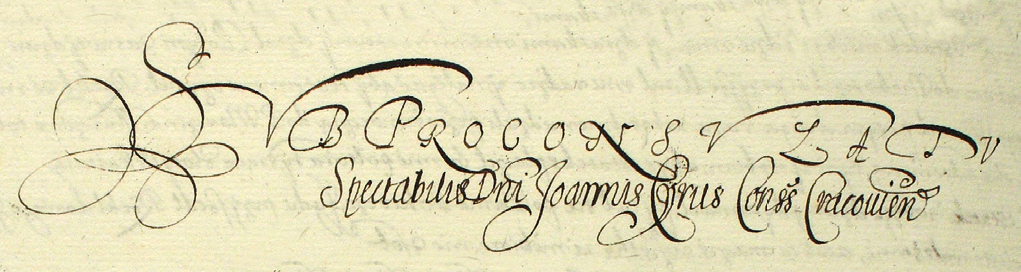 SVB PROCONSVLATV
Spectabilis Dni Joannis Cyrus Conss Cracouien